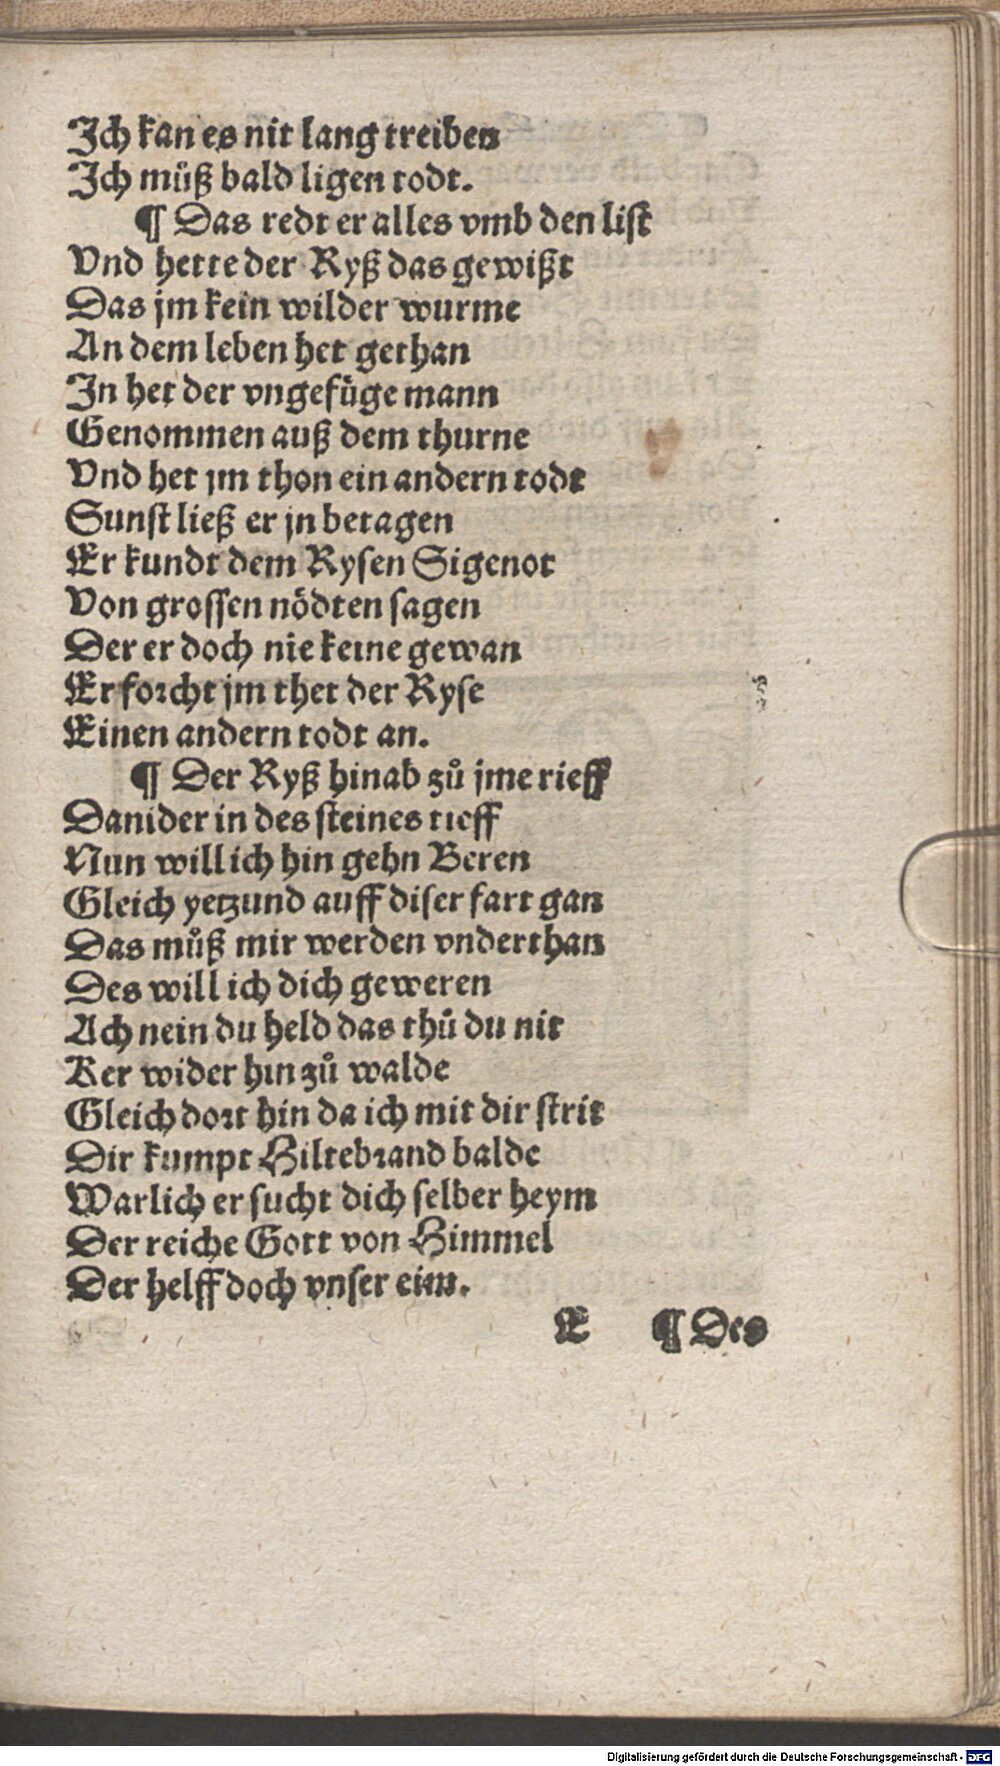 Ich kan es nit lang treiben
Ich můß bald ligen todt.
¶ Das redt er alles vmb den list
Vnd hette der Ryß das gewißt
Das jm kein wilder wurme
An dem leben het gethan
In het der vngefůge mann
Genommen auß dem thurne
Vnd het jm thon ein andern todt
Sunst ließ er jn betagen
Er kundt dem Rysen Sigenot
Von grossen nödten sagen
Der er doch nie keine gewan
Er forcht jm thet der Ryse
Einen andern todt an.
¶ Der Ryß hinab zů jme rieff
Danider in des steines tieff
Nun will ich hin gehn Beren
Gleich yetzund auff diser fart gan
Das můß mir werden vnderthan
Des will ich dich geweren
Ach nein du held das thů du nit
Ker wider hin zů walde
Gleich dort hin da ich mit dir strit
Dir kumpt Hiltebrand balde
Warlich er sucht dich selber heym
Der reiche Gott von Himmel
Der helff doch vnser eim.
E ¶ Des
Digitalisierung gefördert durch die Deutsche Forschungsgemeinschaft - DFG